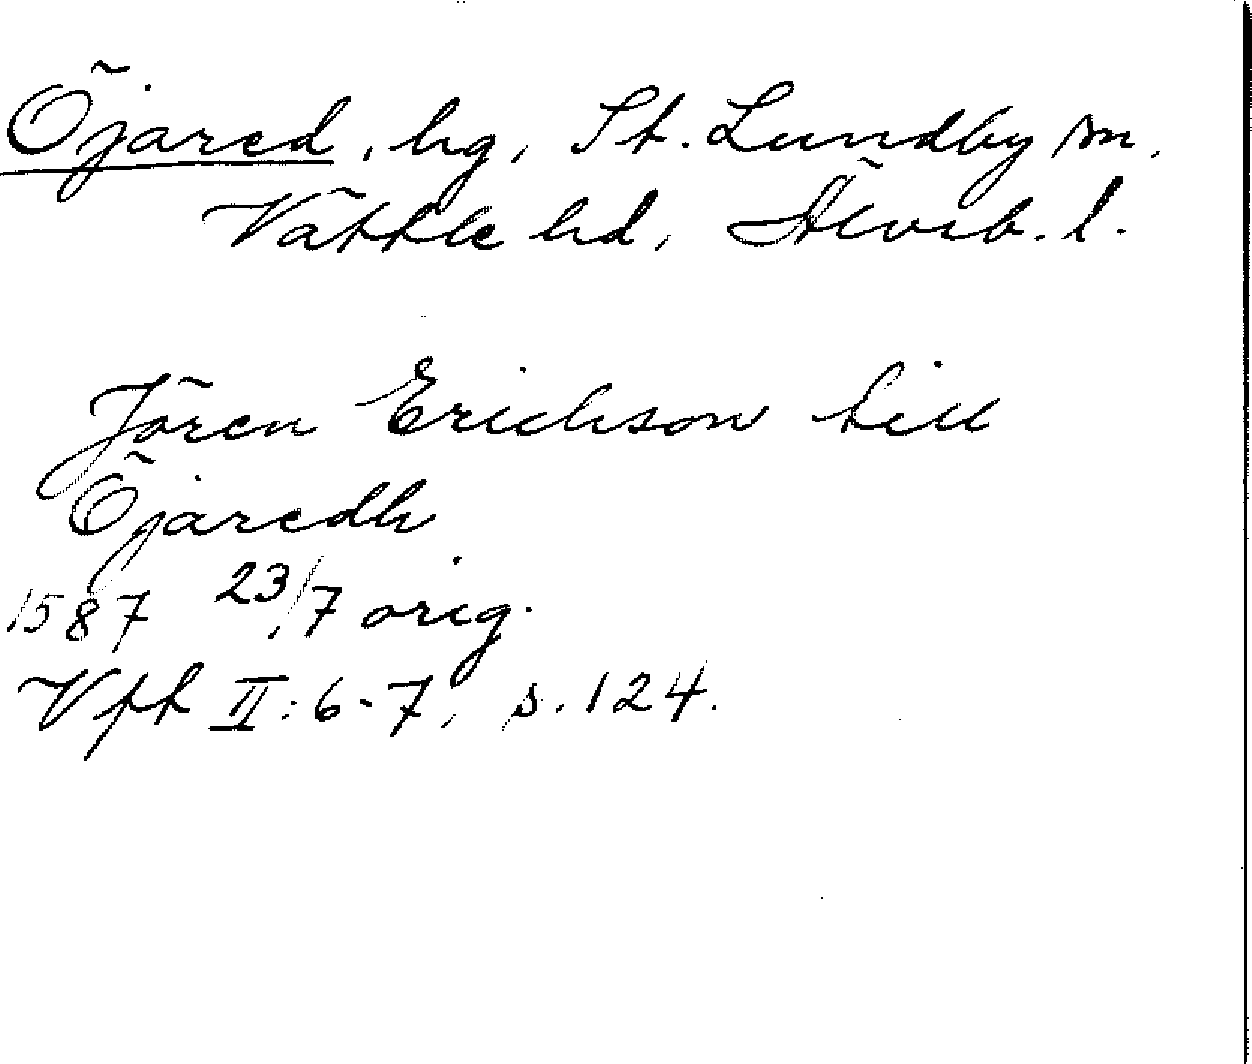 Öjared, hg, St. Lundby sn,
Vättle hd, Älvsb. l.
Jören Erichson till
Öjaredh
1587 23/7 orig.
Vfk II: 6-7, s. 124.